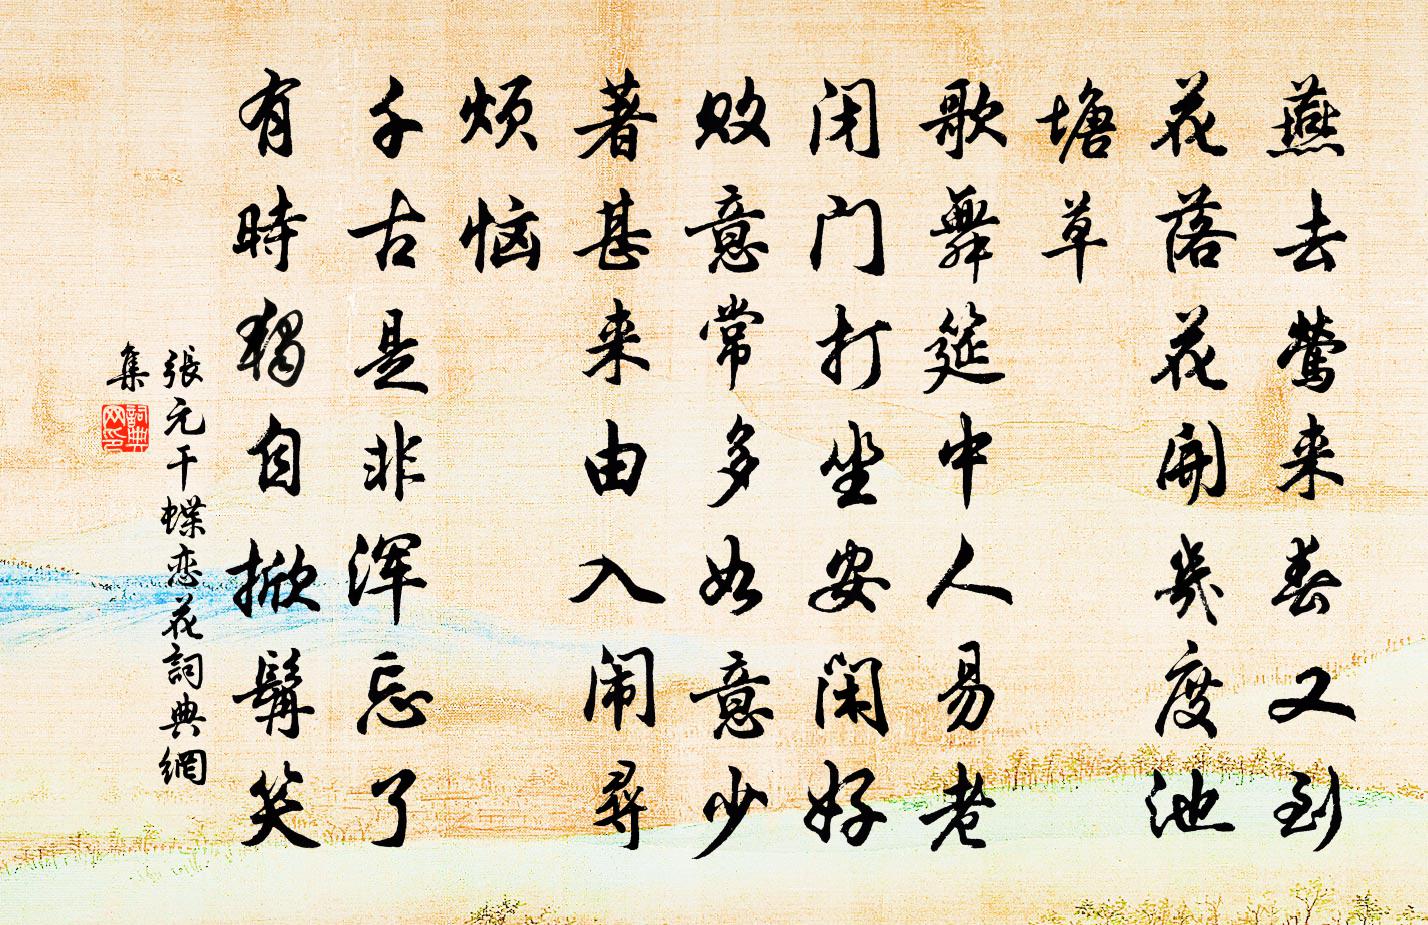 燕去莺来春又到
花落花開幾度池
塘草
歌舞筵中人易老
闭门打坐安闲好
败意常多如意少
著甚来由入闹尋
烦恼
千古是非浑忘了
有時獨自掀髯笑
張元干蝶恋花詞典網
集
詞典
网印